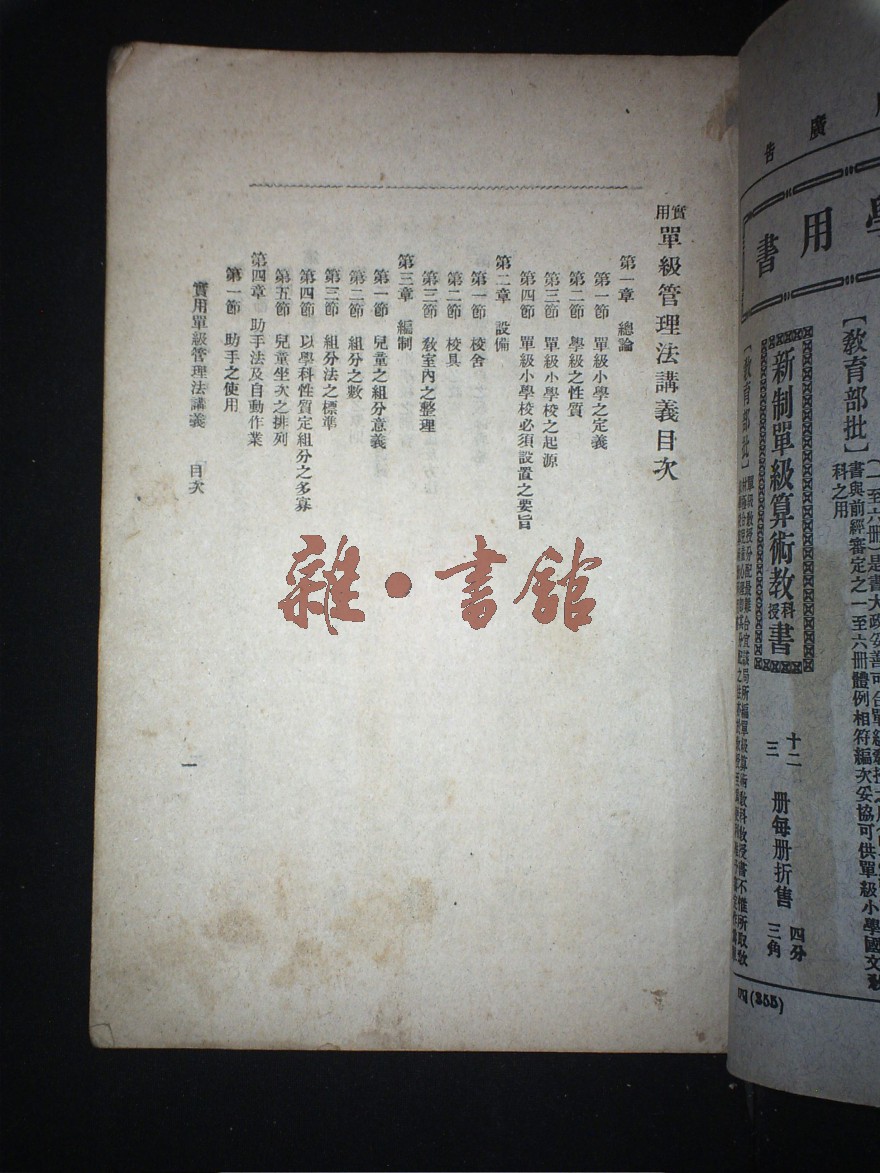 實用單級管理法講義目次
第一章　總論
第一節　單級小學之定義
第二節　學級之性質
第三節　單級小學校之起源
第四節　單級小學校必須設置之要旨
第二章　設備
第一節　校舍
第二節　校具
第三節　教室內之整理
第三章　編制
第一節　兒童之組分意義
第二節　組分之數
第三節　組分法之標準
第四節　以學科性質定組分之多寡
第五節　兒童坐次之排列
第四章　助手法及自動作業
第一節　助手之使用
實用單級管理法講義　目次
一
雜·書館
廣告
學用書
【教育部批】
書與前經審定之一至六冊體例相符編次妥協可供單級小學國文教
科之用
新制單級算術教科教授書
十二冊每冊折售四分
三冊每冊折售三角
【教育部批】
四(355)